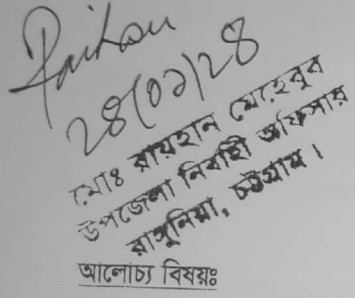 Raihan
২৪/০১/২৪
মোঃ রায়হান মেহেবুব
উপজেলা নির্বাহী অফিসার
রাঙ্গুনিয়া, চট্টগ্রাম।
আলোচ্য বিষয়ঃ